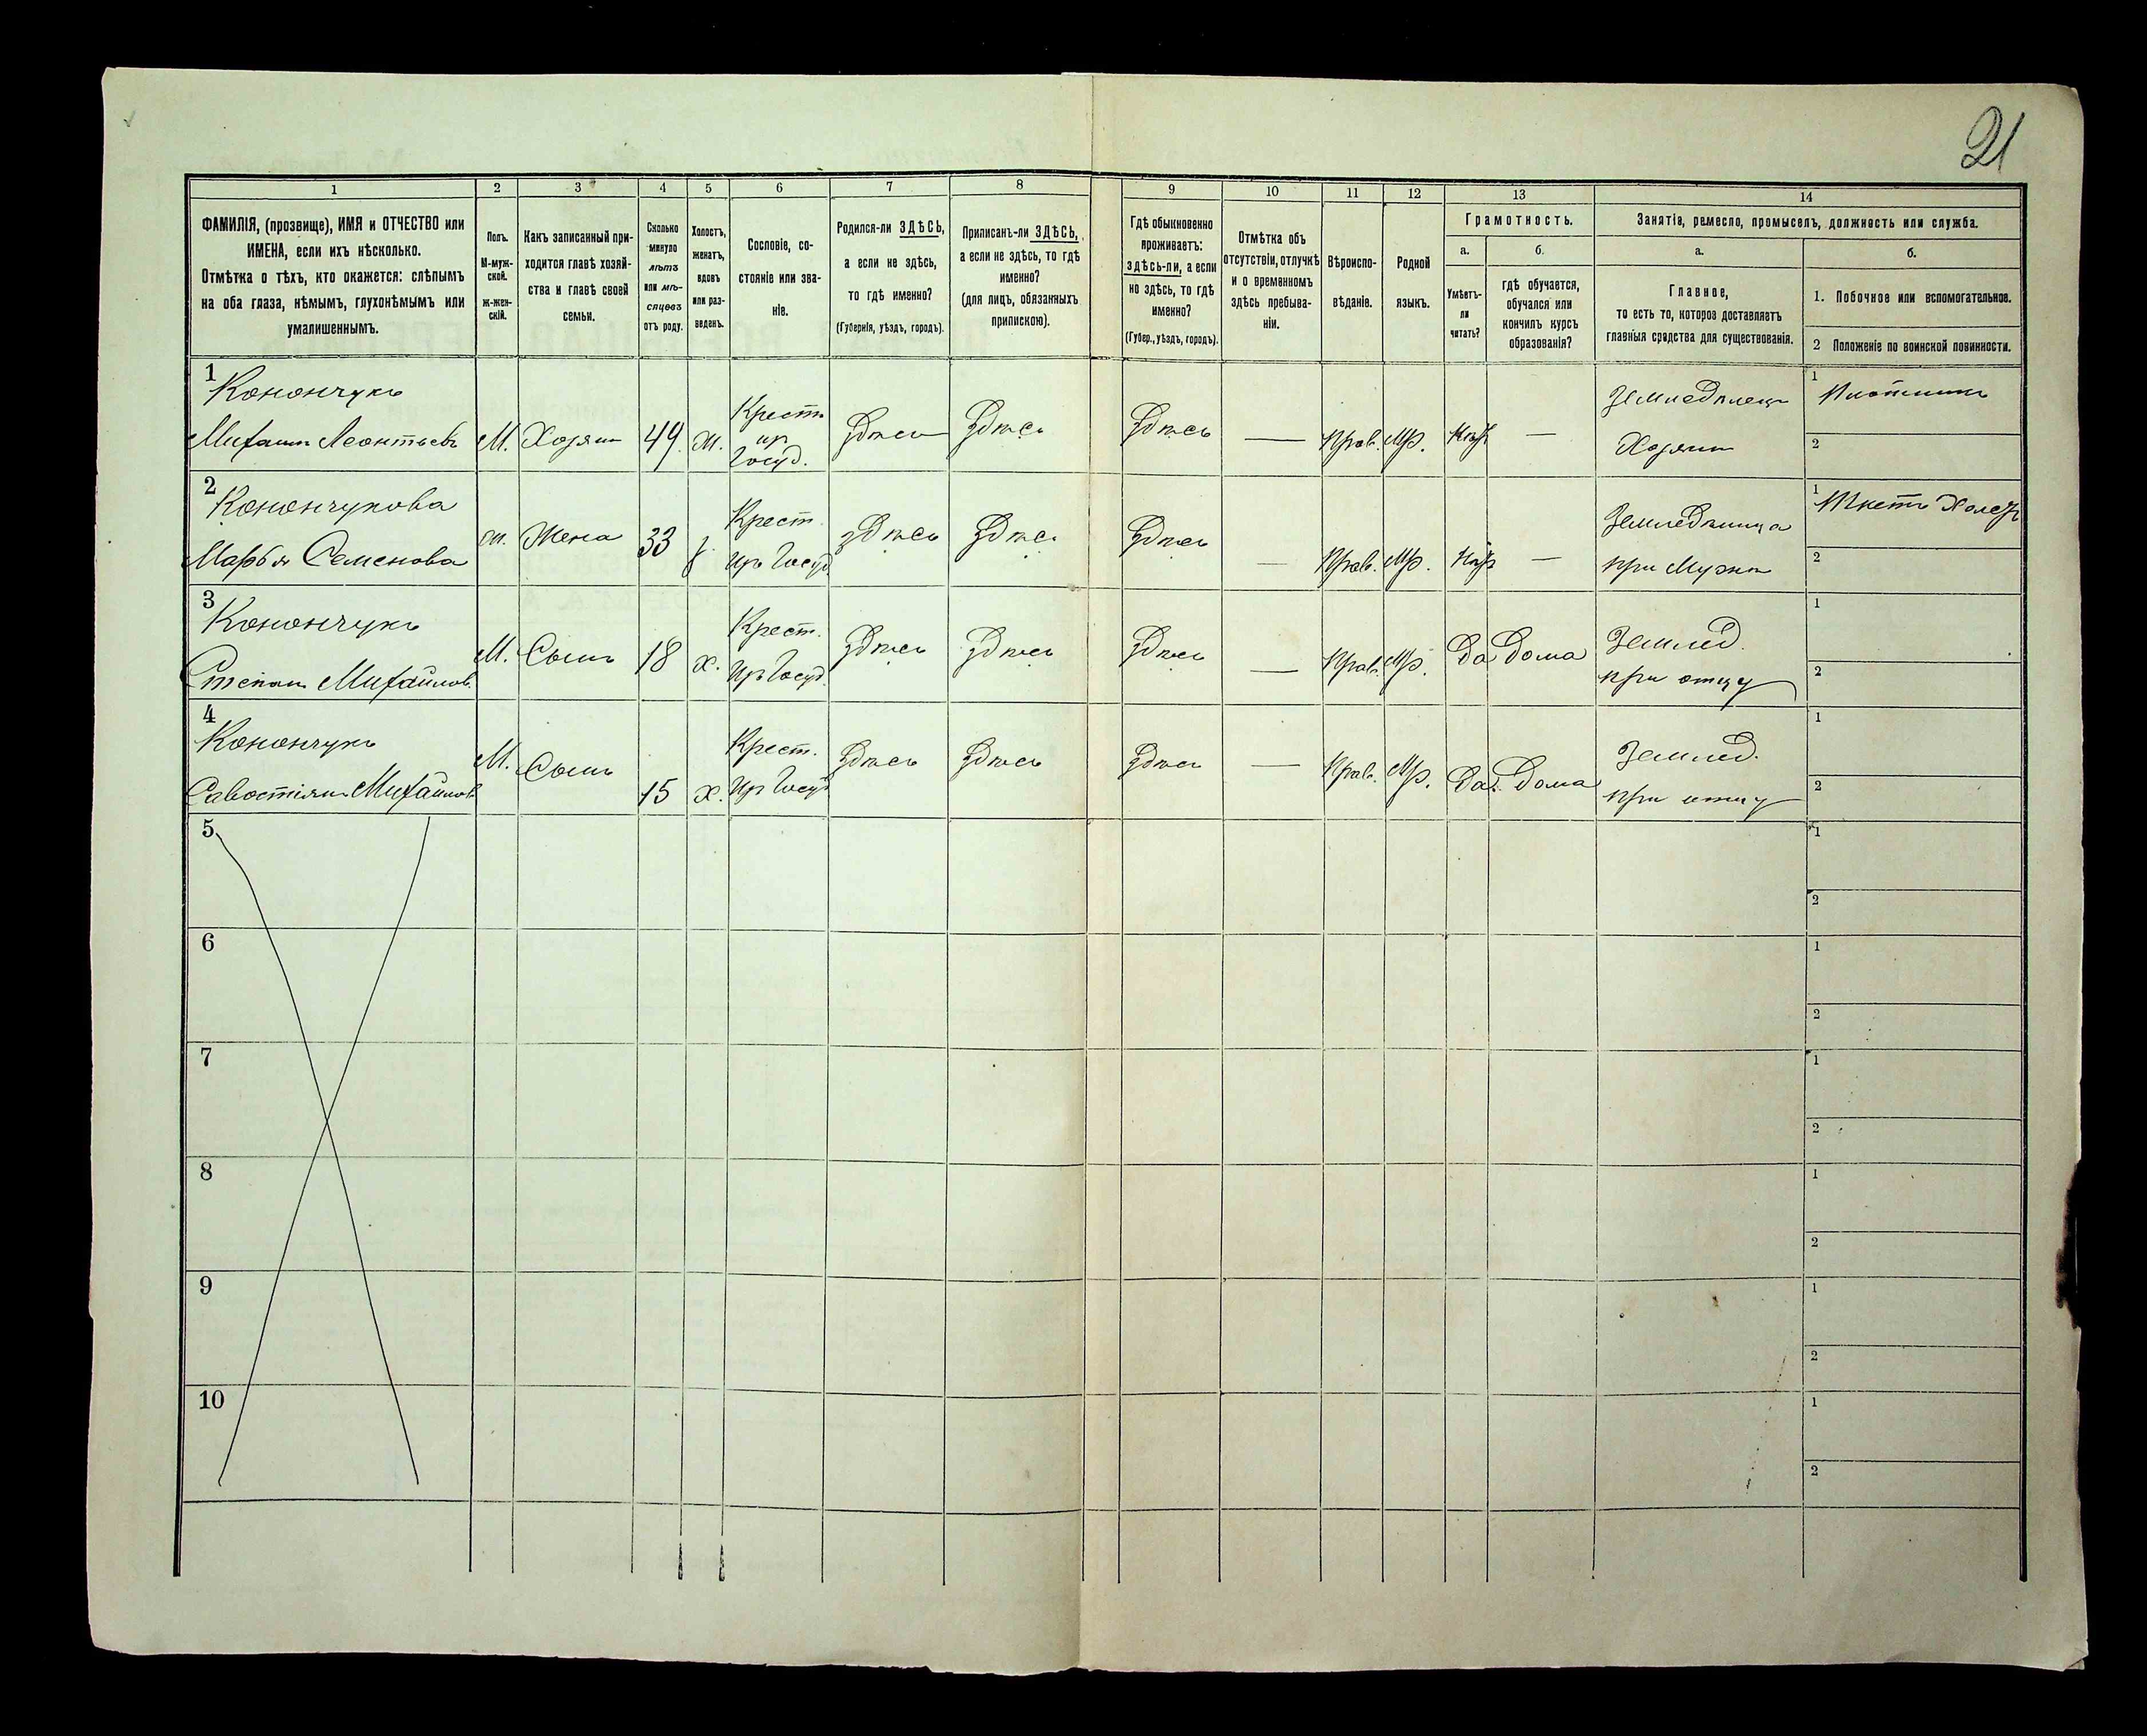 21
1 2 3 4 5 6 7 8 9 10 11 12 13 14
ФАМИЛІЯ, (прозвище), ИМЯ и ОТЧЕСТВО или
ИМЕНА, если ихъ нѣсколько.
Отмѣтка о тѣхъ, кто окажется: слѣпымъ
на оба глаза, нѣмымъ, глухонѣмымъ или
умалишеннымъ.
Полъ.
М-муж-
ской.
ж-жен-
скій.
Какъ записанный при-
ходится главѣ хозяй-
ства и главѣ своей
семьи.
Сколько
минуло
лѣтъ
или мѣ-
сяцевъ
отъ роду.
Холостъ,
женатъ,
вдовъ
или раз-
веденъ.
Сословіе, со-
стояніе или зва-
ніе.
Родился-ли ЗДѢСЬ,
а если не здѣсь,
то гдѣ именно?
(Губернія, уѣздъ, городъ).
Приписанъ-ли ЗДѢСЬ,
а если не здѣсь, то гдѣ
именно?
(для лицъ, обязанныхъ
припискою).
Гдѣ обыкновенно
проживаетъ:
здѣсь-ли, а если
не здѣсь, то гдѣ
именно?
(Губер., уѣздъ, городъ).
Отмѣтка объ
отсутствіи, отлучкѣ
и о временномъ
здѣсь пребыва-
ніи.
Вѣроиспо-
вѣданіе.
Родной
языкъ.
Грамотность.
а.
Умѣетъ-
ли
читать?
б.
гдѣ обучается,
обучался или
кончилъ курсъ
образованія?
Занятіе, ремесло, промыселъ, должность или служба.
а.
Главное,
то есть то, которое доставляетъ
главныя средства для существованія.
б.
1. Побочное или вспомогательное.
2 Положеніе по воинской повинности.
1
Конончукъ
Михаилъ Леонтьевъ
М.
Хозяин
49
ж.
Крестъ
Госуд.
Здѣсь
Здѣсь
Здѣсь
—
Прав.
Мр.
—
Земледѣлецъ
Хозяинъ
1
Плотникъ
2
2
Конончукова
Марья Семенова
ж.
Жена
33
Крест.
Госуд
здѣсь
Здѣсь
Здѣсь
—
Прав.
Мр.
—
Земледѣлица
при Мужѣ
1
2
3
Конончукъ
Степанъ Михайлов.
М.
Сынъ
18
х.
Крест.
Госуд.
Здѣсь
Здѣсь
Здѣсь
—
Прав.
Мр.
Да
Дома
Землед.
при отцу
1
2
4
Конончукъ
Савостіянъ Михайлов
М.
Сынъ
15
х.
Крест.
Госуд
Здѣсь
Здѣсь
Здѣсь
—
Прав.
Мр.
Да.
Дома
Землед.
при отцу
1
2
5
1
2
6
1
2
7
1
2
8
1
2
9
1
2
10
1
2